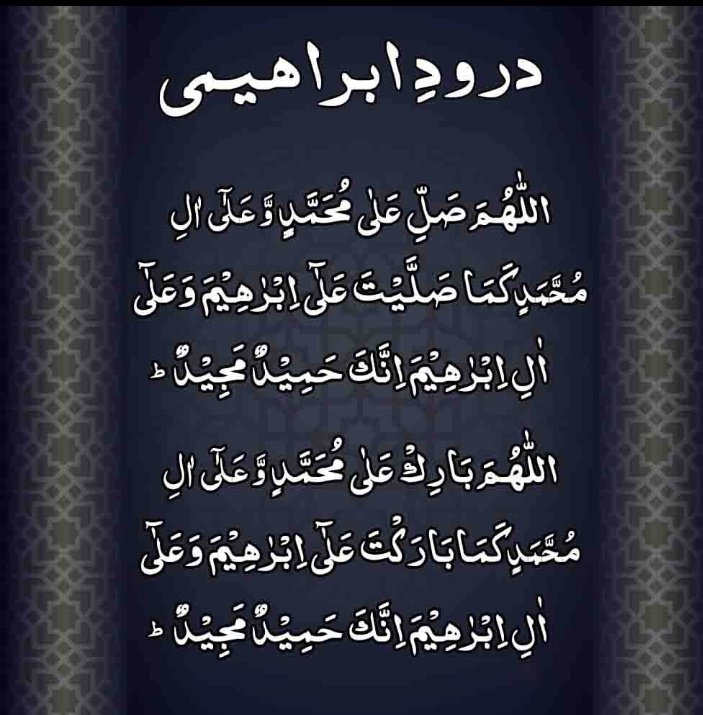 درودِ ابراهیمی
اللّٰهُمَّ صَلِّ عَلٰی مُحَمَّدٍ وَّعَلٰٓی اٰلِ
مُحَمَّدٍ كَمَا صَلَّيْتَ عَلٰٓی اِبْرٰهِيْمَ وَعَلٰٓی
اٰلِ اِبْرٰهِيْمَ اِنَّكَ حَمِيْدٌ مَّجِيْدٌ ؕ
اللّٰهُمَّ بَارِكْ عَلٰی مُحَمَّدٍ وَّعَلٰٓی اٰلِ
مُحَمَّدٍ كَمَا بَارَكْتَ عَلٰٓی اِبْرٰهِيْمَ وَعَلٰٓی
اٰلِ اِبْرٰهِيْمَ اِنَّكَ حَمِيْدٌ مَّجِيْدٌ ؕ